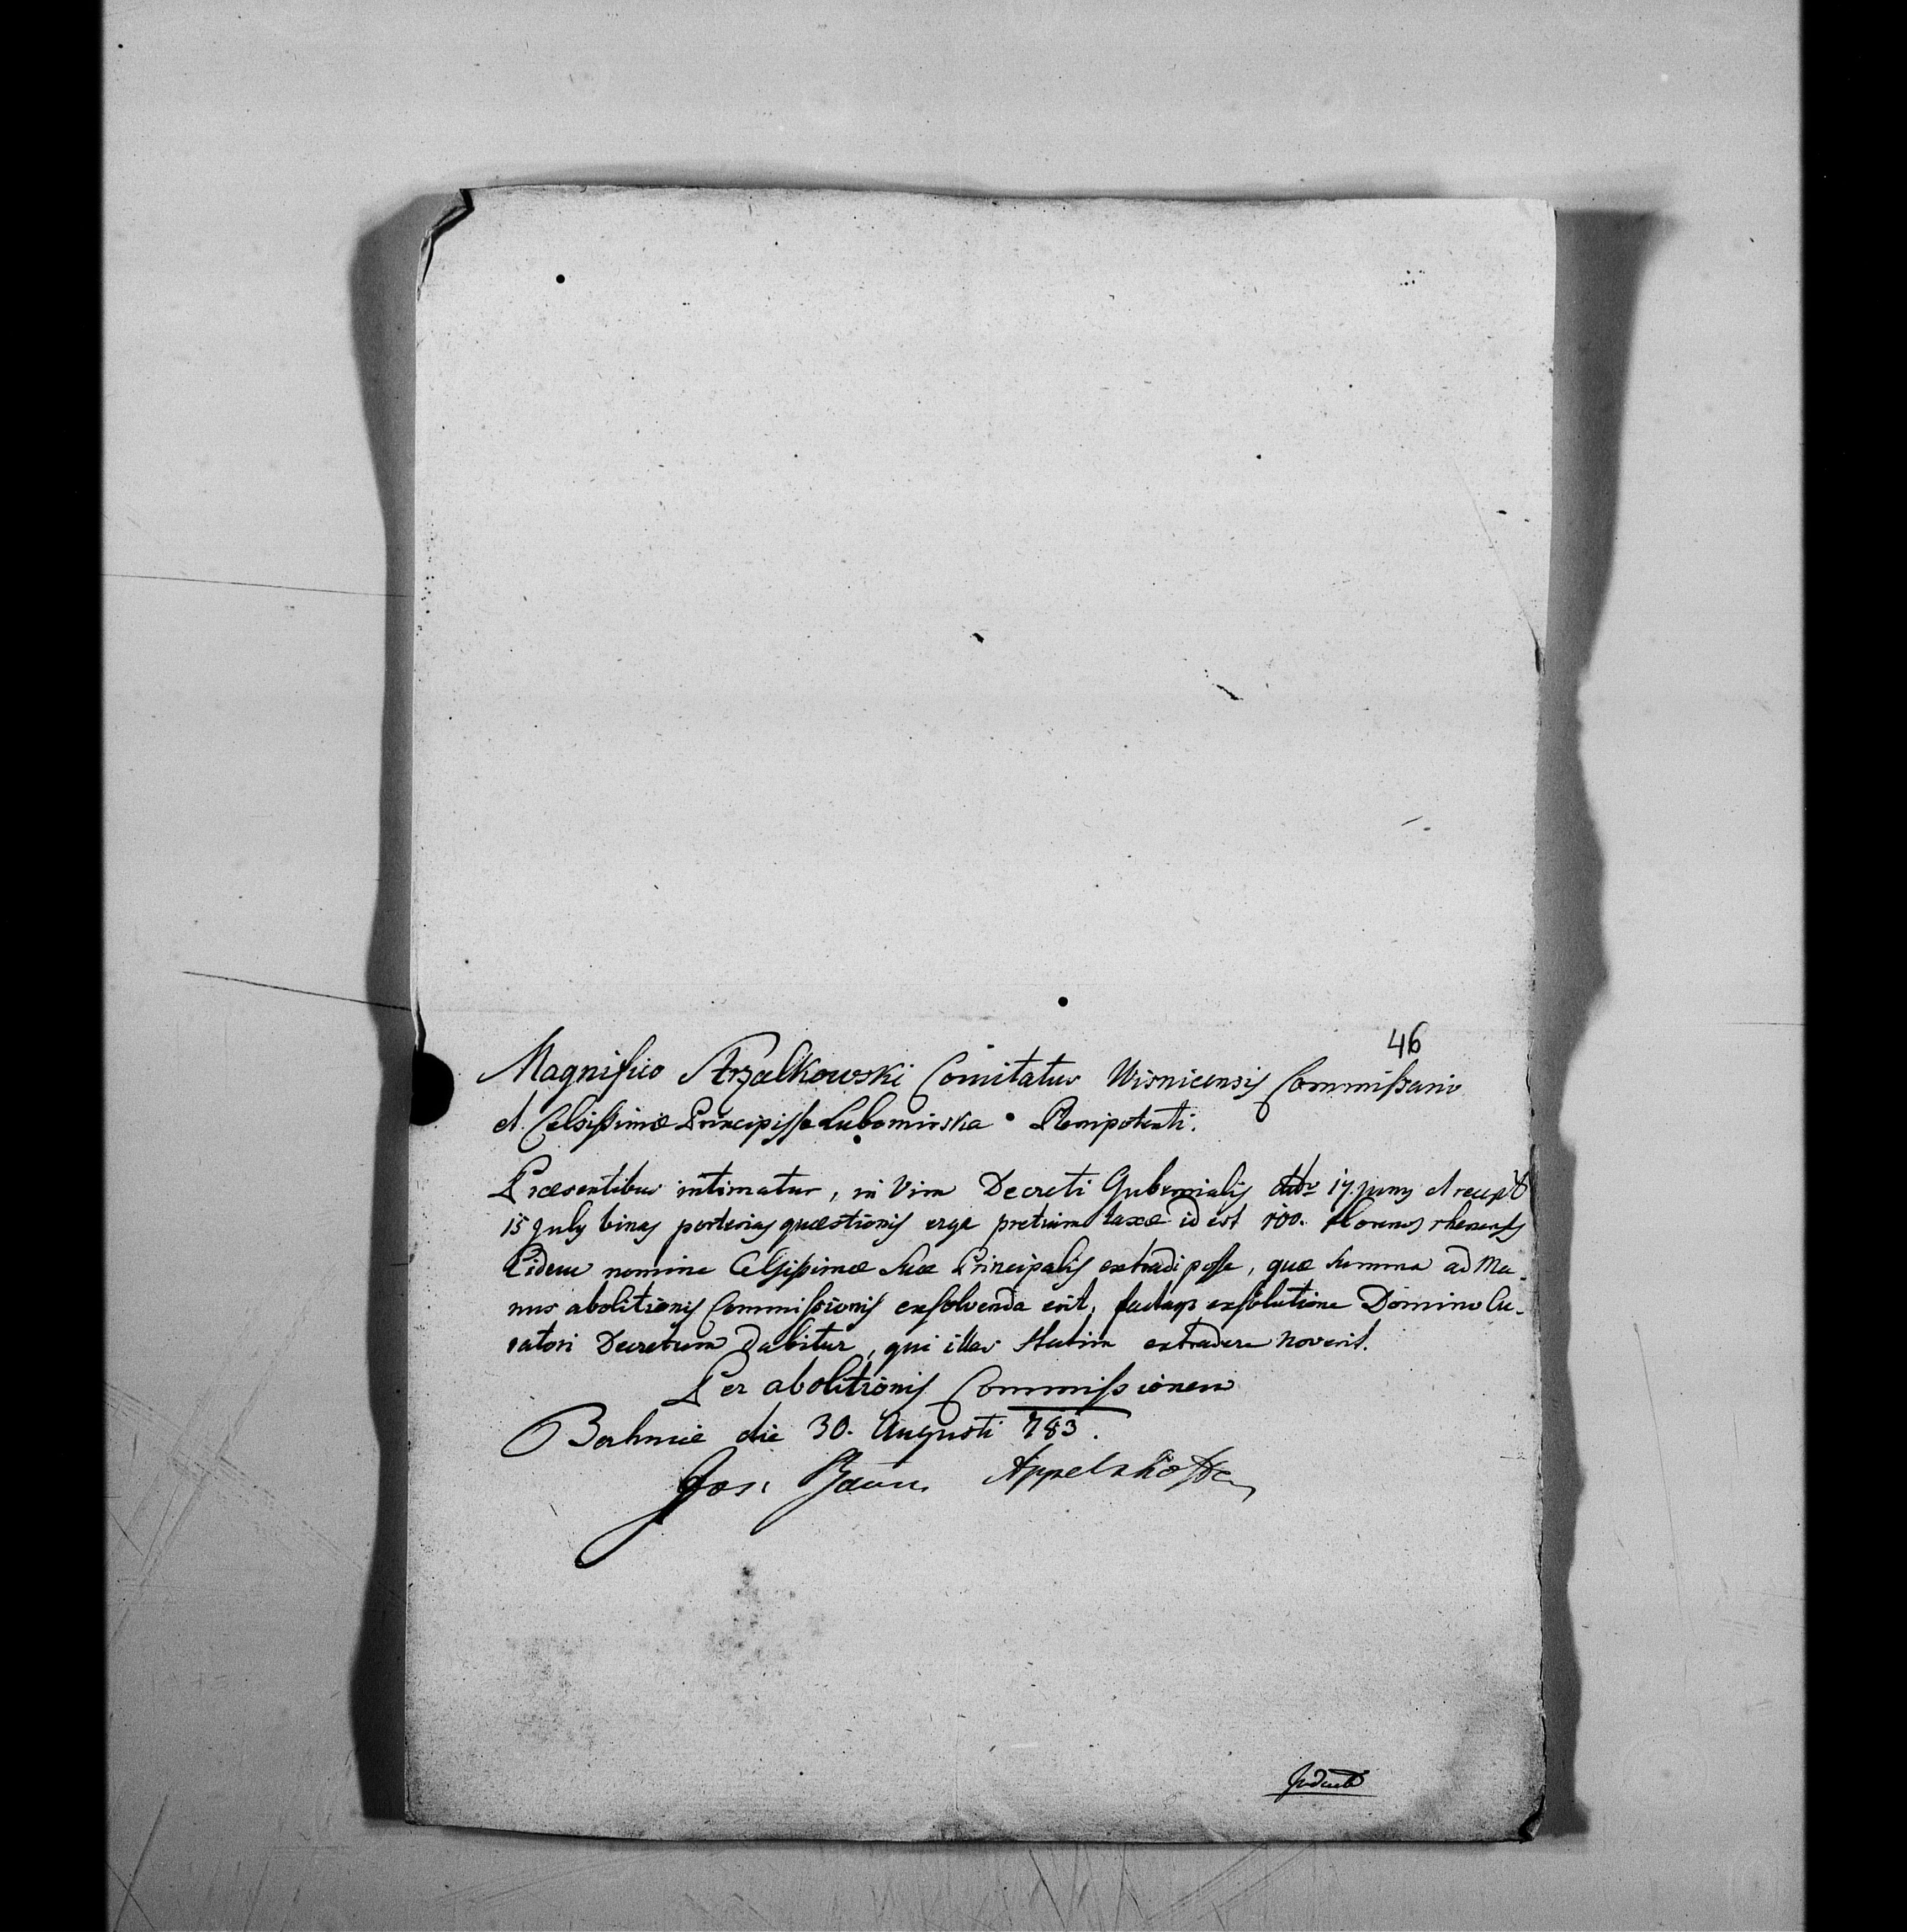 46
Magnifico Strzalkowski Comitatus Wisnicensis Commissario
et Celsissimæ Principissæ Lubomirska Plenipotenti.
Præsentibus intimatur, in vim Decreti Gubernialis ddto 17. Juny et recepto
15 July binas portorias quæstionis erga pretium taxæ id est 100. florenos rhenenses
Eidem nomine Celsissimæ Suæ Principalis extradi posse, quæ summa ad Ma-
nus abolitionis Commissionis exsolvenda erit, factaqs exsolutione Domino Cu-
ratori Decretum dabitur, qui illas statim extradere noverit.
Per abolitionis Commissionem
Bochniæ die 30. Augusti 783.
Jos. Baum Appelshoffen